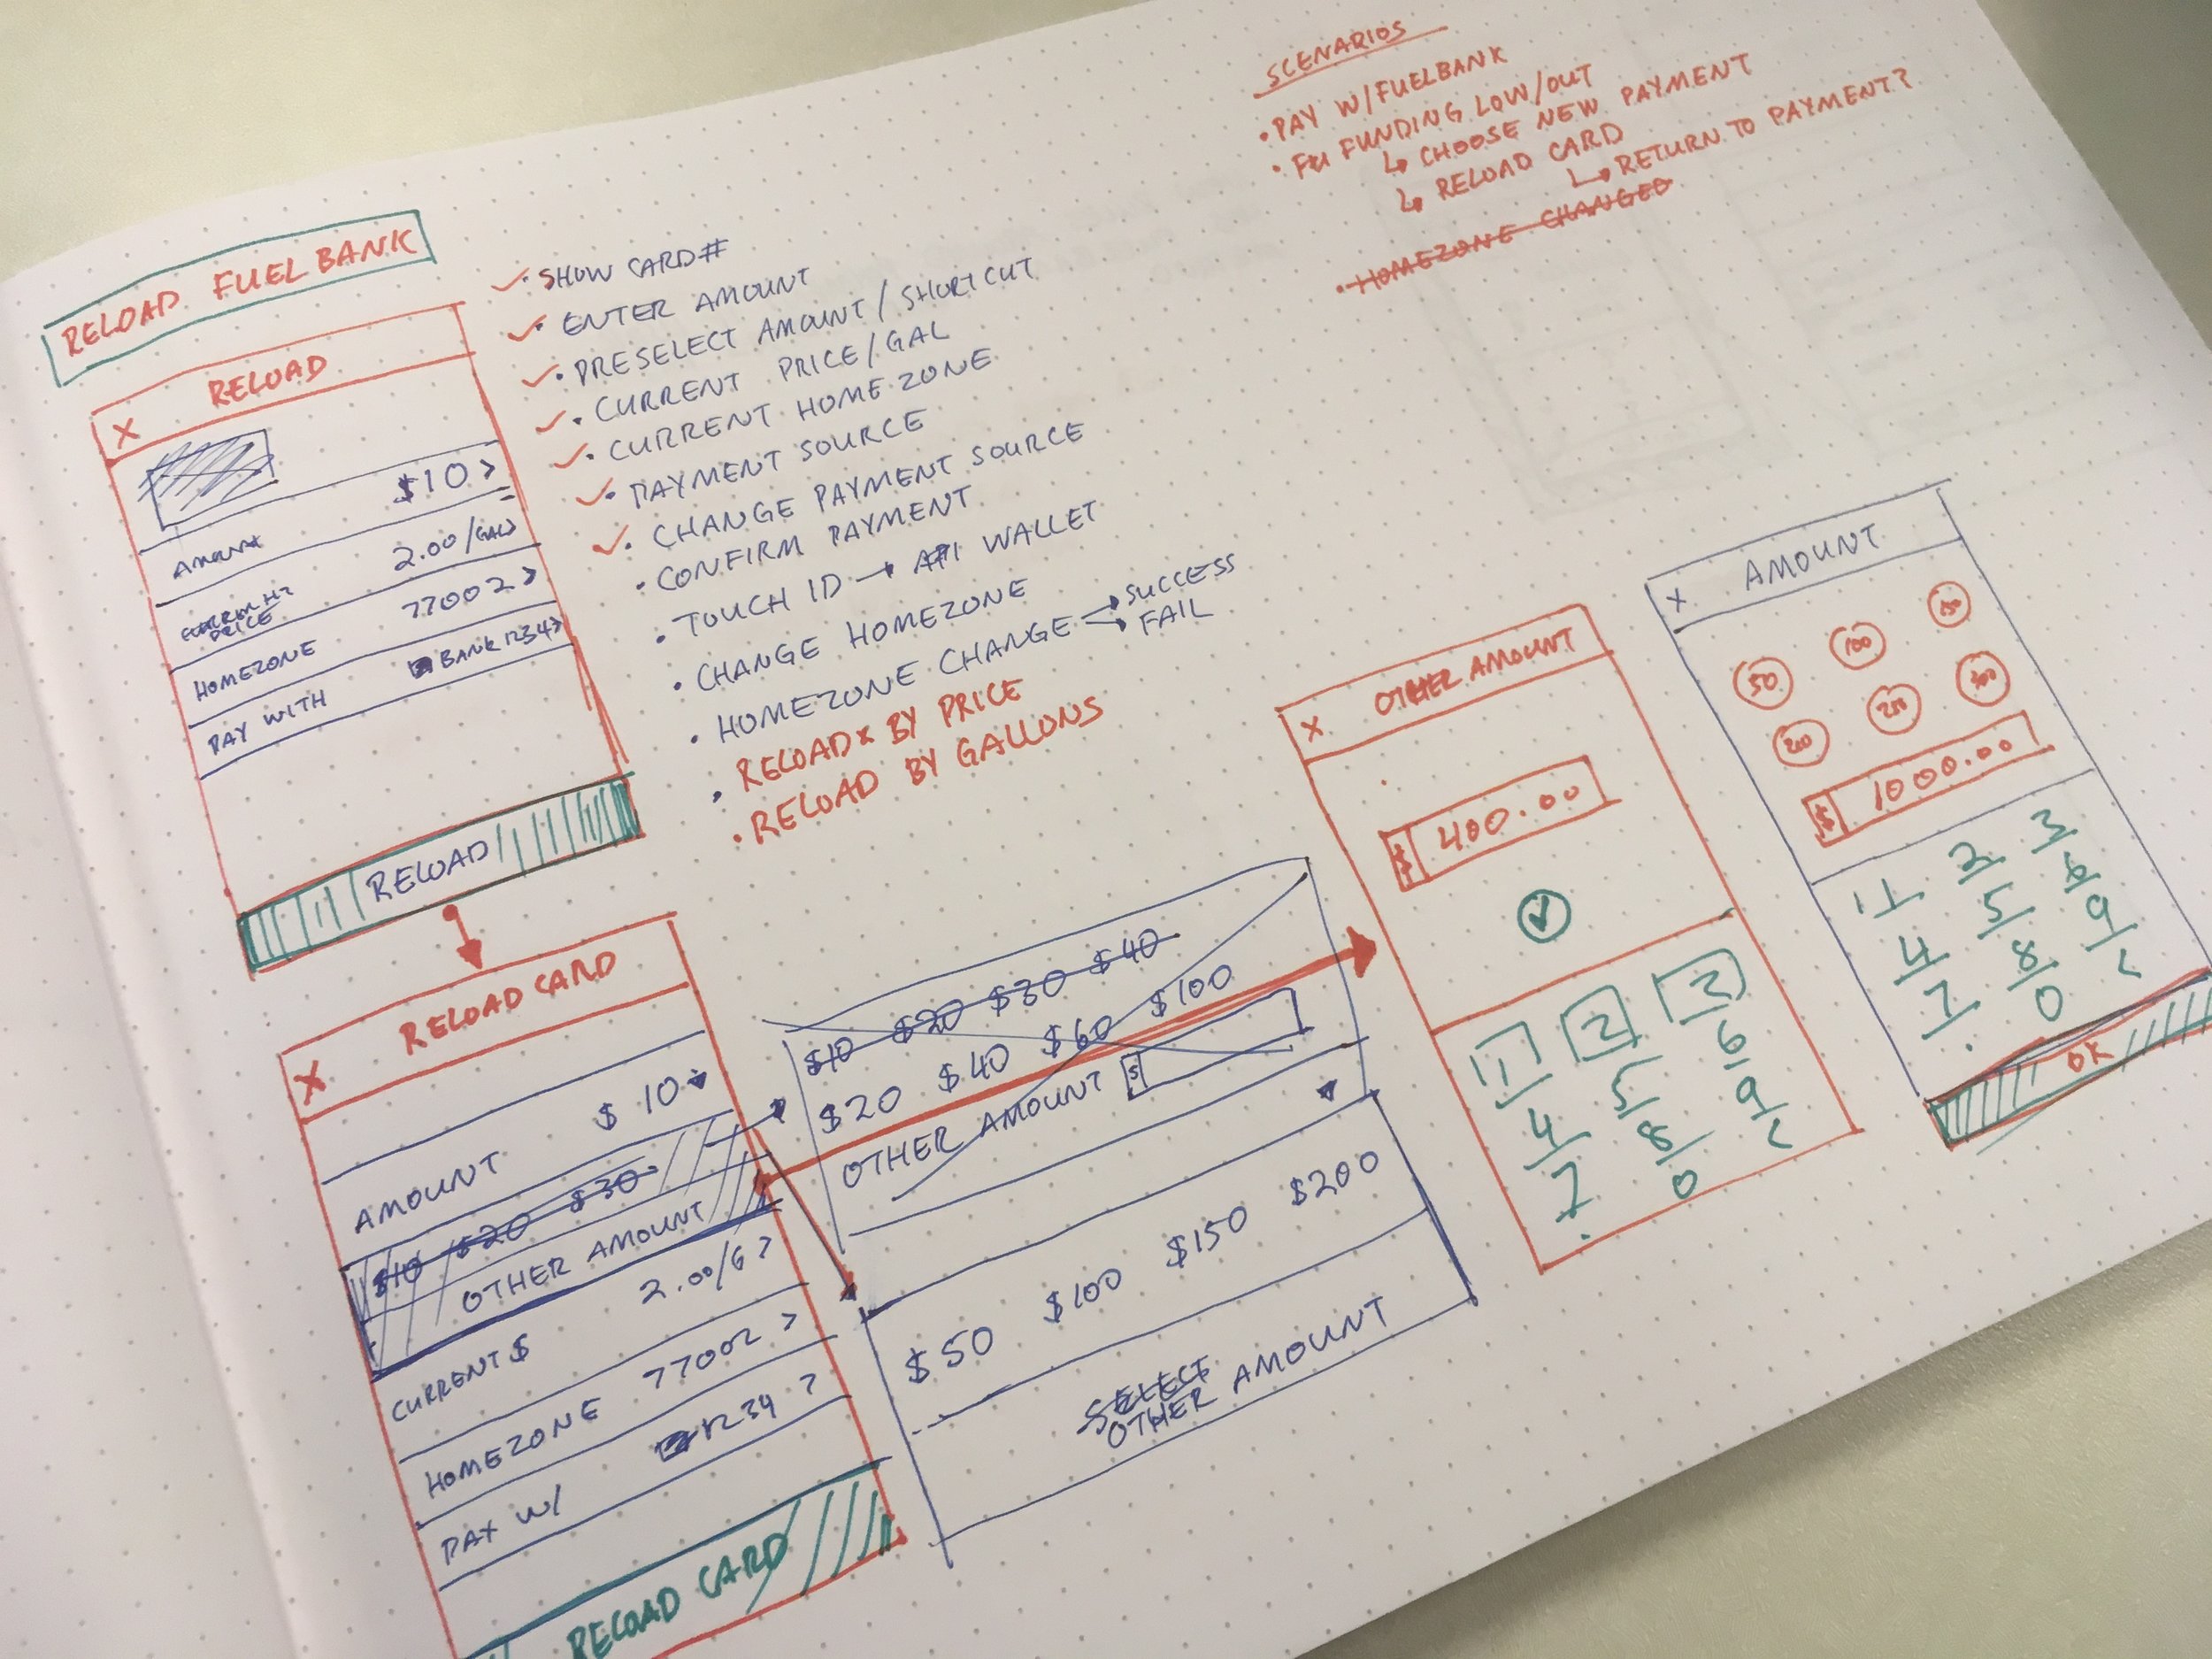 RELOAD FUELBANK
X RELOAD
$10 >
AMOUNT
2.00/GAL>
CURRENT
PRICE
HOMEZONE 77002 >
PAY WITH BANK 1234>
RELOAD
• SHOW CARD#
• ENTER AMOUNT
• PRESELECT AMOUNT / SHORTCUT
• CURRENT PRICE/GAL
• CURRENT HOMEZONE
• PAYMENT SOURCE
• CHANGE PAYMENT SOURCE
• CONFIRM PAYMENT
• TOUCH ID → WALLET
• CHANGE HOMEZONE
• HOMEZONE CHANGE → SUCCESS
→ FAIL
• RELOAD BY PRICE
• RELOAD BY GALLONS
SCENARIOS
• PAY W/FUELBANK
• FUNDING LOW/OUT
↳ CHOOSE NEW PAYMENT
↳ RELOAD CARD
↳ RETURN TO PAYMENT?
• HOMEZONE CHANGED
X RELOAD CARD
AMOUNT $ 10
$10 $20 $30
OTHER AMOUNT
CURRENT $ 2.00/G >
HOMEZONE 77002 >
PAY W/ 1234 >
RELOAD CARD
$10 $20 $30 $40
$20 $40 $60 $100
OTHER AMOUNT $
$50 $100 $150 $200
SELECT
OTHER AMOUNT
X OTHER AMOUNT
$ 400.00
1 2 3
4 5 6
7 8 9
. 0 <
X AMOUNT
50 100 150
200 250 300
$ 1000.00
1 2 3
4 5 6
7 8 9
. 0 <
OK